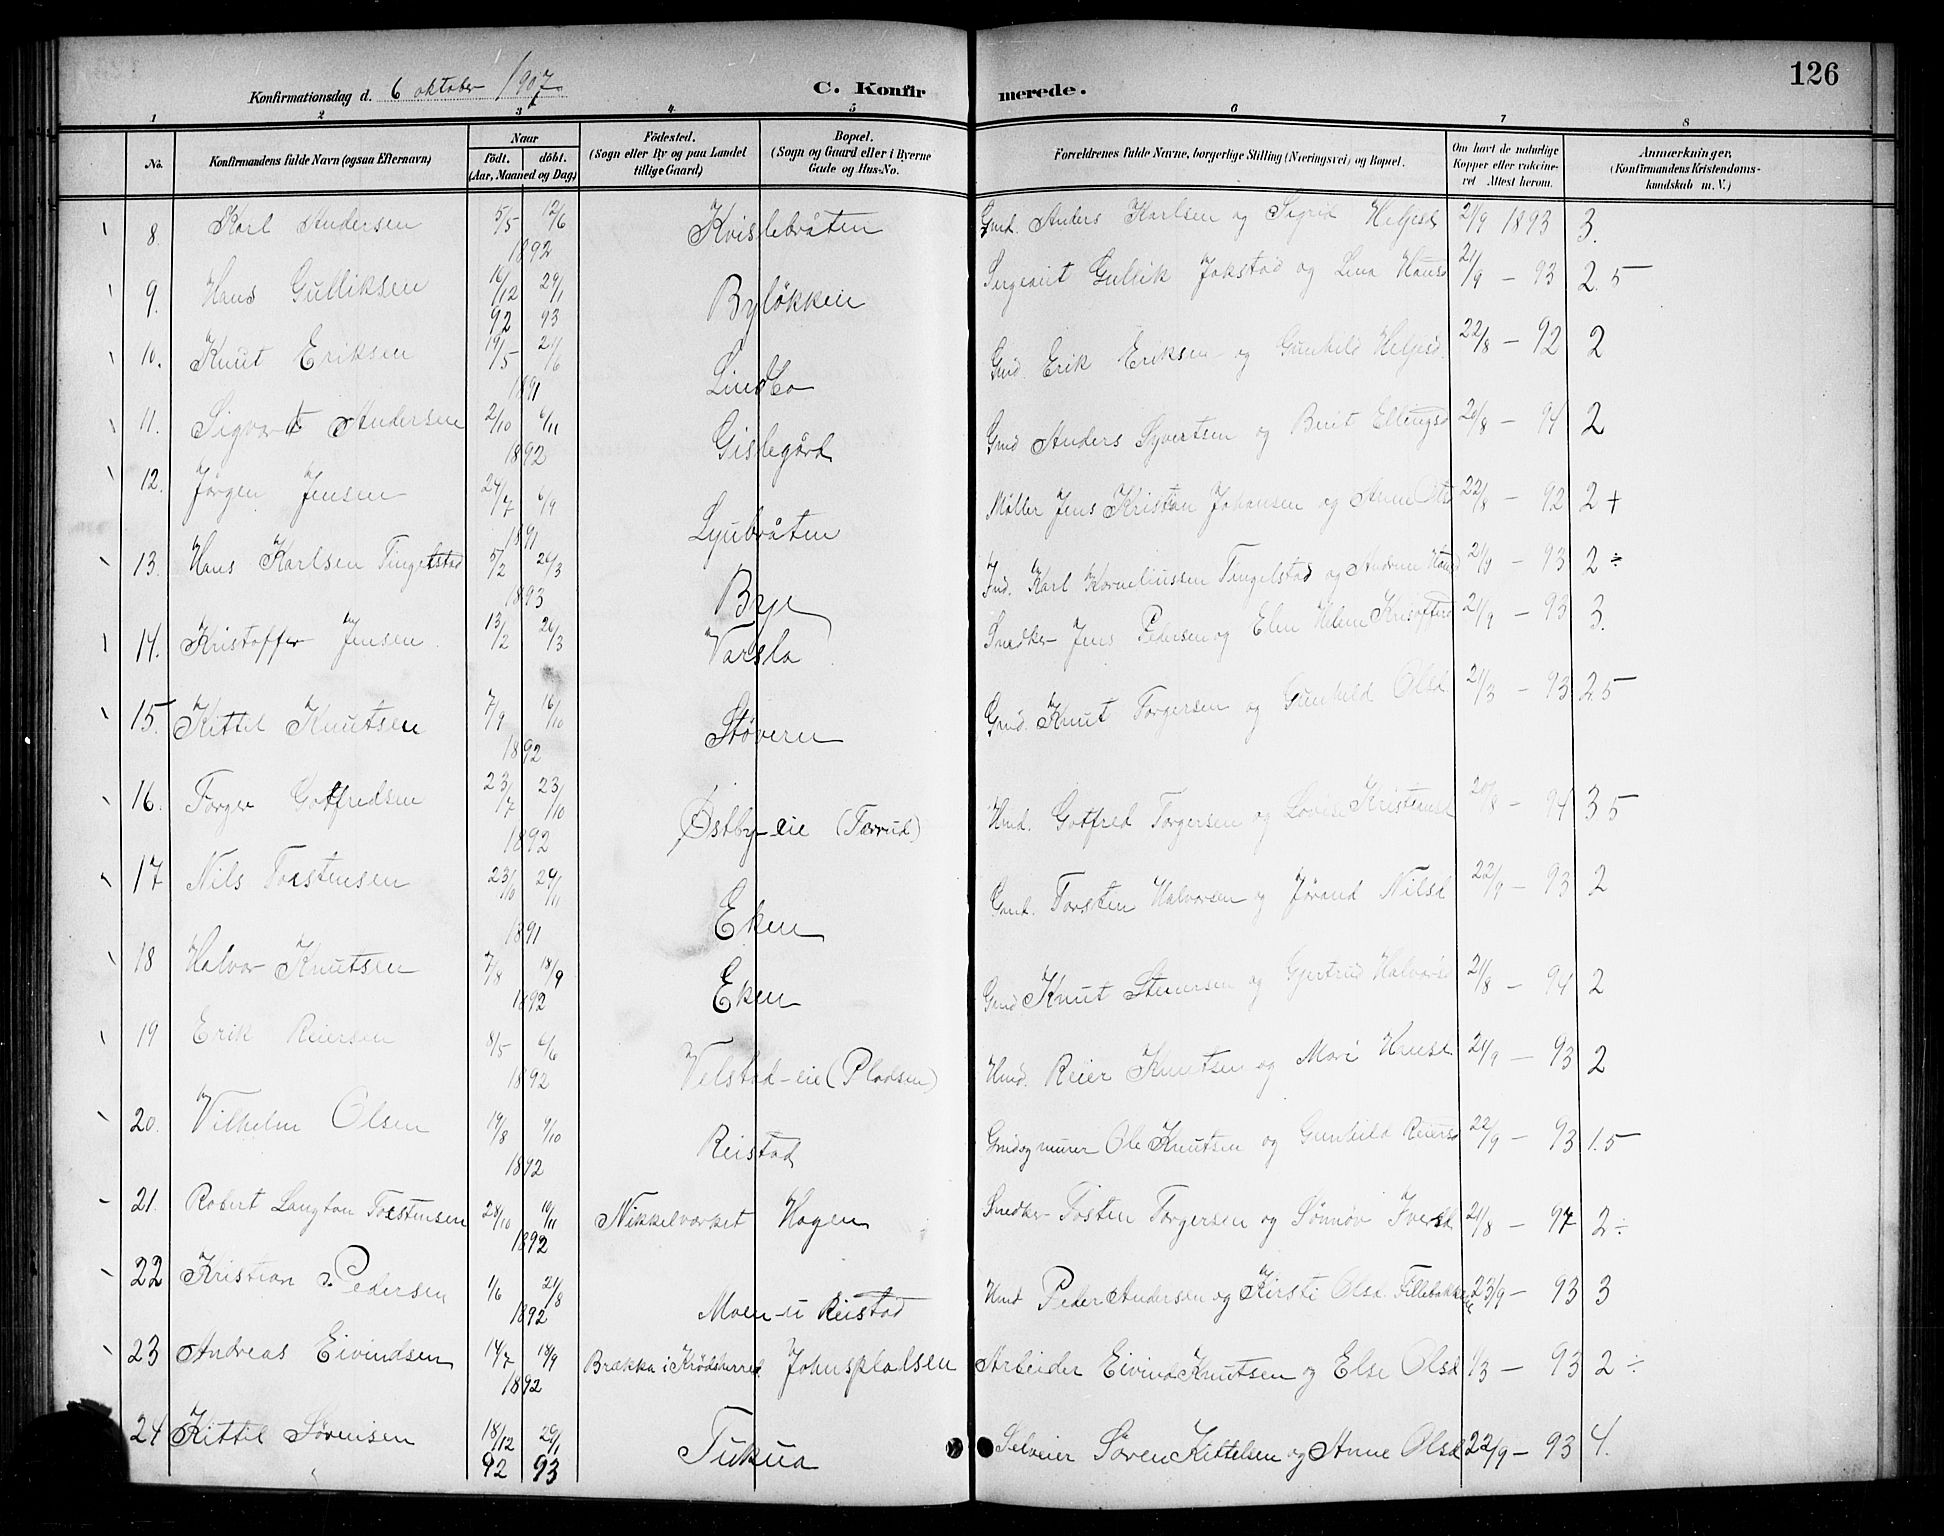 126
Konfirmationsdag d. 6 oktober 1907 C. Konfirmerede.
1 2 3 4 5 6 7 8
No. Konfirmandens fulde Navn (ogsaa Efternavn) Naar födt. döbt. (Aar, Maaned og Dag) Födested. (Sogn eller By og paa Landet tillige Gaard) Bopæl. (Sogn og Gaard eller i Byerne Gade og Hus-No. Forældrenes fulde Navne, borgerlige Stilling (Næringsvei) og Bopæl. Om havt de naturlige Kopper eller vaccineret Attest herom. Anmærkninger, (Konfirmandens Kristendomskundskab m. V.)
8. Karl Andersen 5/5 12/6 1892 Kvislebråten Gmd. Anders Karlsen og Sigrid Helgesd 21/9 1893 3.
9. Hans Gulliksen 16/12 92 29/1 93 Byløkken Sergeant Gullik Jokstad og Lina Hansd 21/9 – 93 2.5
10. Knut Eriksen 19/5 21/6 1891 Lindbo Gmd. Erik Eriksen og Gunhild Helgesd. 22/8 – 92 2
11. Sigvart Andersen 2/10 6/11 1892 Gislegård Gmd Anders Syvertsen og Berit Ellingsd 20/8 – 94 2
12. Jørgen Jensen 24/7 6/9 1891 Ljubråten Møller Jens Kristian Johansen og Anne Olsd 22/8 – 92 2 +
13. Hans Karlsen Tingelstad 5/2 26/3 1893 Bye Ind. Karl Korneliussen Tingelstad og Andrine Hansd 21/9 – 93 2 ÷
14. Kristoffer Jensen 13/2 26/3 Varslo Snedker Jens Pedersen og Elen Helene Kristoffersd 21/9 – 93 3.
15. Kittil Knutsen 7/9 16/10 1892 Støveren Gmd. Knut Torgersen og Gunhild Olsd 21/3 – 93 2.5
16. Torger Gotfredsen 23/7 23/10 1892 Østby-eie (Torrud) Hmd. Gotfred Torgersen og Lovise Kristiansd 20/8 – 94 3 5
17 Nils Torstensen 23/10 29/11 1891 Eken Gmd. Torsten Halvorsen og Jørand Nilsd 22/9 – 93 2
18 Halvor Knutsen 7/8 18/9 1892 Eken Gmd Knut Steinersen og Gjertrud Halvorsd 21/8 – 94 2
19 Erik Reiersen 8/5 6/6 1892 Velstad-eie (Pladsen) Hmd. Reier Knutsen og Mari Knusd. 21/9 – 93 2
20. Vilhelm Olsen 19/8 9/10 1892 Reistad Gmd og murer Ole Knutsen og Gunhild Reiersd 22/9 – 93 1.5
21. Robert Langton Torstensen 28/10 19/11 1892 Nikkelværket Hagen Snedker Tosten Torgersen og Sønnøv Iversd 21/8 – 97 2 ÷
22 Kristian Pedersen 1/6 21/8 1892 Moen-u Reistad Hmd Peder Andersen og Kirsti Olsd. Fillebakken 23/9 – 93 3
23 Andreas Eivindsen 14/7 18/9 1892 Brækka i Krødsherred Johnspladsen Arbeider Eivind Knutsen og Else Olsd 1/3 – 93 2 ÷
24 Kittil Sørensen 18/12 92 29/1 93 Tukua Selveier Søren Kittelsen og Anne Olsd 22/9 – 93 4.